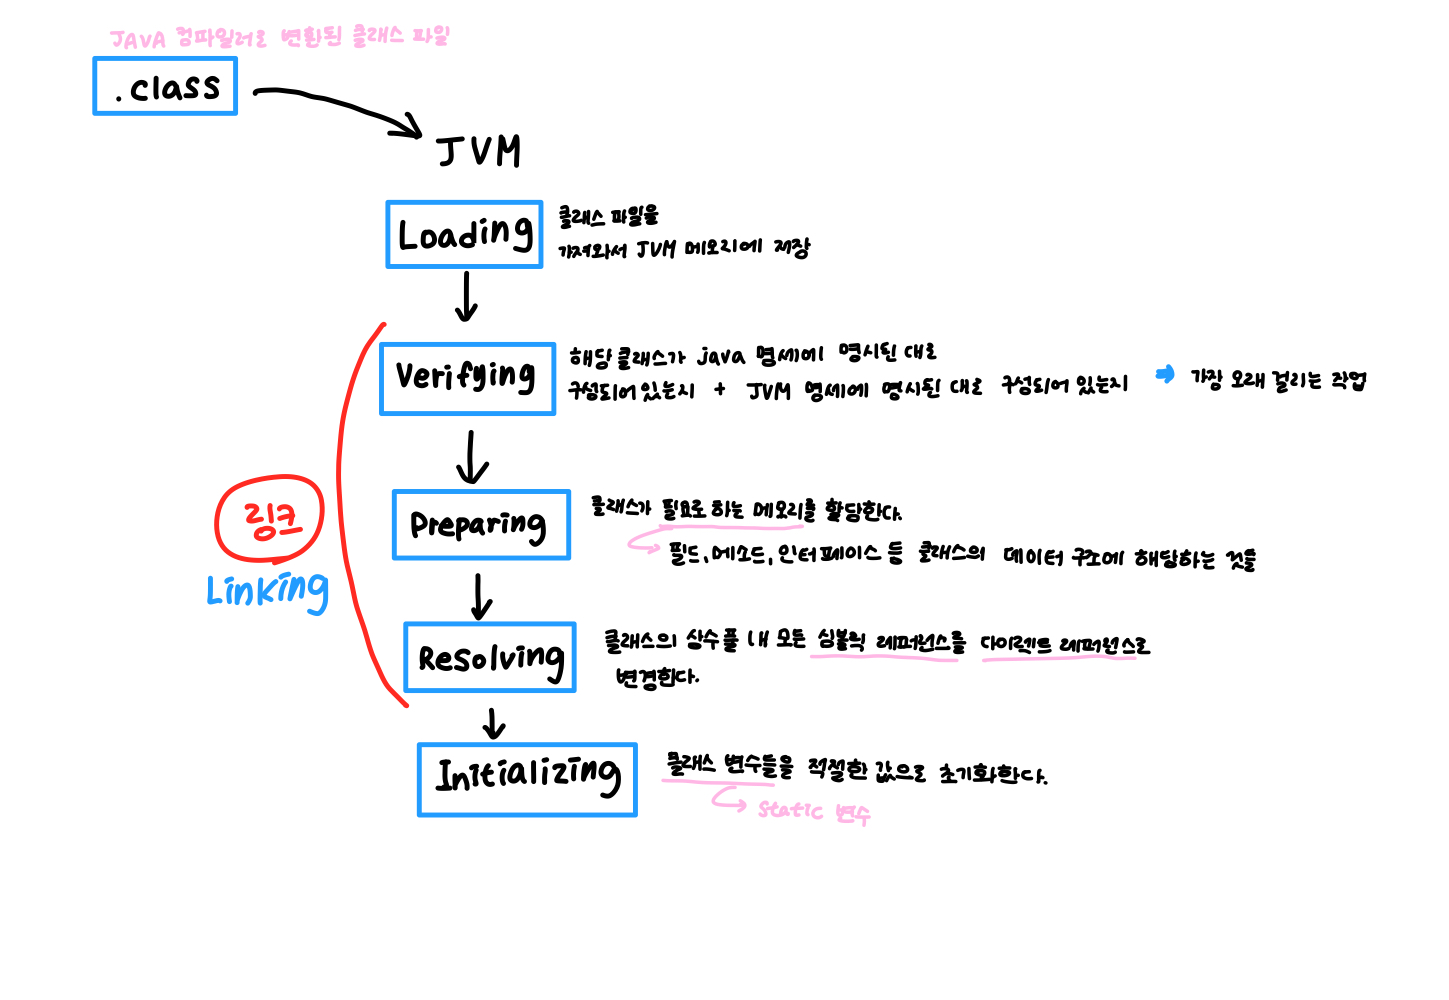 JAVA 컴파일러로 변환된 클래스 파일
.class
JVM
Loading
클래스 파일을
가져와서 JVM 메모리에 저장
Verifying
해당 클래스가 java 명세에 명시된 대로
구성되어 있는지 + JVM 명세에 명시된 대로 구성되어 있는지
가장 오래 걸리는 작업
링크
Linking
Preparing
클래스가 필요로 하는 메모리를 할당한다.
필드, 메소드, 인터페이스 등 클래스의 데이터 구조에 해당하는 것들
Resolving
클래스의 상수풀 내 모든 심볼릭 레퍼런스를 다이렉트 레퍼런스로
변경한다.
Initializing
클래스 변수들을 적절한 값으로 초기화한다.
static 변수